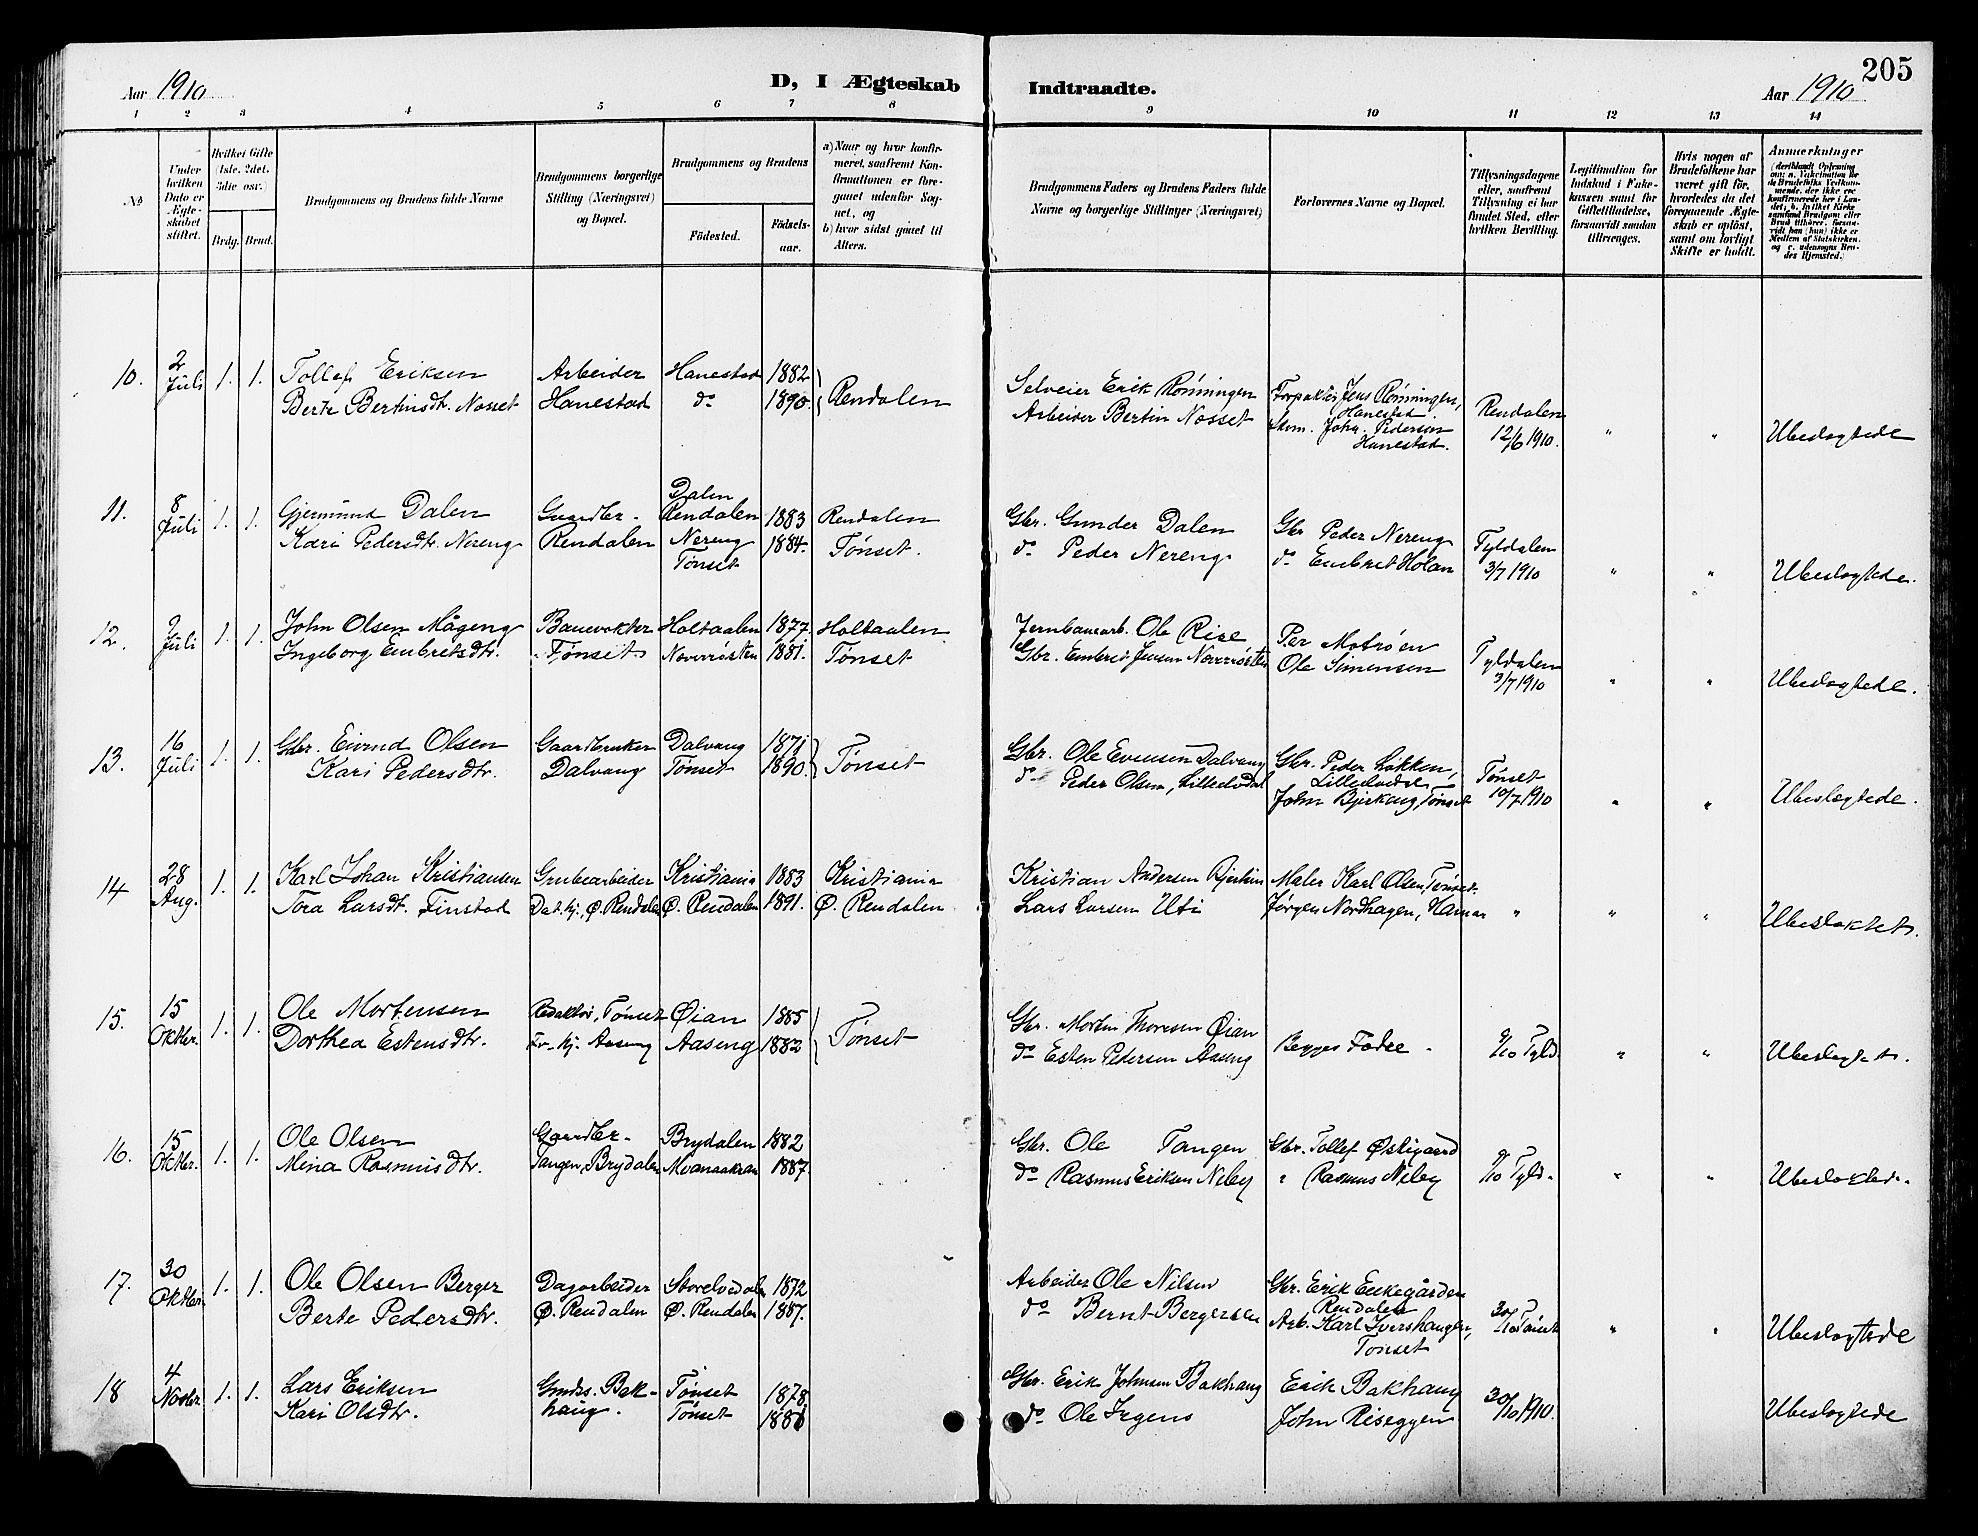 205
Aar 1910
D, I Ægteskab Indtraadte.
Aar 1910
1 2 3 4 5 6 7 8 9 10 11 12 13 14
No
Under hvilken Dato er Ægteskabet stiftet.
Hvilket Gifte (1ste, 2det, 3die osv.)
Brdg. Brud.
Brudgommens og Brudens fulde Navne
Brudgommens borgerlige Stilling (Næringsvei) og Bopæl.
Brudgommens og Brudens
Fødested.
Fødselsaar.
a) Naar og hvor konfirmeret, saafremt Konfirmationen er foregaaet udenfor Sognet, og
b) hvor sidst gaaet til Alters.
Brudgommens Faders og Brudens Faders fulde Navne og borgerlige Stillinger (Næringsvei)
Forlovernes Navne og Bopæl.
Tillysningsdagene eller, saafremt Tillysning ei har fundet Sted, efter hvilken Bevilling.
Legitimation for Indskud i Enkekassen samt for Giftetilladelse, forsaavidt saadan tiltrænges.
Hvis nogen af Brudefolkene har været gift før, hvorledes da det foregaaende Ægteskab er opløst, samt om lovligt Skifte er holdt.
Anmærkninger
10. 2 Juli 1. 1. Tollef Eriksen Arbeider Hanestad 1882
Berte Bertinsdtr. Nosset Hanestad do 1890. Rendalen
Selveier Erik Rømningen
Arbeider Bertin Nosset
Forpakter Jens Rømningen, Hanestad
Skom. Joh. Pedersen Hanestad.
Rendalen 12/6 1910. " " Ubeslogtede
11. 8 Juli 1. 1. Gjermund Dalen Gaardbr. Dalen Rendalen 1883 Rendalen
Kari Pedersdtr. Nereng Rendalen Nereng Tønset 1884. Tønset.
Gbr. Gunder Dalen
do Peder Nereng
Gbr Peder Nereng
do Embret Holan
Tyldalen 3/7 1910 " " Ubeslogtede.
12. 9 Juli 1. 1. John Olsen Mågeng Banevokter Holtaalen 1877 Holtaalen
Ingeborg Embretsdtr. Tønset Noverrøsten 1881. Tønset
Jernbanearb. Ole Rise
Gbr. Embret Jensen Noverrøsten
Per Motrøen
Ole Simensen
Tyldalen 3/7 1910 " " Ubeslogtede.
13. 16 Juli 1. 1. Gbr. Eivind Olsen Gaardbruker Dalvang 1871
Kari Pedersdtr. Dalvang Tønset 1890. Tønset
Gbr. Ole Evensen Dalvang
do Peder Olsen, Lilleelvdal
Gbr. Peder Løkken, Lilleelvdal
John Bjerkeng, Tønset
Tønset 10/7 1910 " " Ubeslogtede.
14 28 Aug. 1. 1. Karl Johan Kristiansen Grubearbeider Kristiania 1883 Kristiania
Tora Larsdt. Finstad Ø. Rendalen Ø. Rendalen 1891. Ø. Rendalen
Kristian Andersen
Lars Larsen Uti
Maler Karl Olsen, Tønset.
Jørgen Nordhagen, Hamar
" " " Ubesloktet.
15. 15 Oktbr. 1. 1. Ole Mortensen Redaktør, Tønset Øian 1885
Dorthea Estensdtr. Aaseng Aaseng 1882 Tønset
Gbr. Mortin Thoresen Øian
do Esten Pedersen Aaseng
Begges Fædre.
9/10 Tyld. " " Ubeslogtet.
16. 15 Oktbr. 1. 1. Ole Olsen Gaardbr. Brydalen 1882
Mina Rasmusdtr. Tangen, Brydalen 1887
Gbr. Ole Tangen
do Rasmus Eriksen Neby
Gbr. Tollef Østigaard
" Rasmus Neby
9/10 Tyld. " "
17. 30 Oktbr. 1. 1. Ole Olsen Berger Dagarbeider Storelvdalen 1872
Berte Pedersdtr. Ø. Rendalen Ø. Rendalen 1887.
Arbeider Ole Nilsen
do Bernt Bergersen
Gbr. Erik Enkegården Rendalen
Arb. Karl Ivershaugen, Tønset
30/10 Tønset " " Ubeslogtede
18 4 Novbr. 1. 1. Lars Eriksen Gmds. Bakhaug. Tønset 1878
Kari Olsdtr. Tønset
Gbr. Erik Johnsen Bakhaug
do Ole Irgens
Erik Bakhaug
John Riseggen
30/10 1910. Ubeslogtede